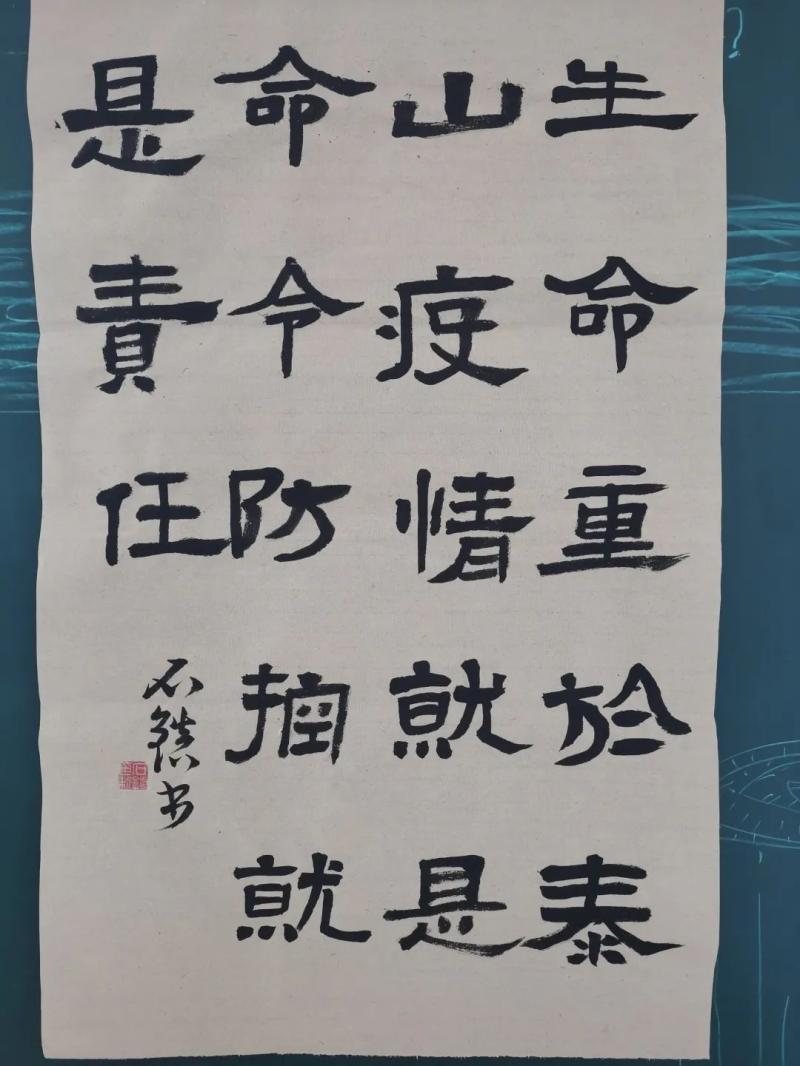 生命重於泰
山疫情就是
命令防控就
是責任
石鎮书